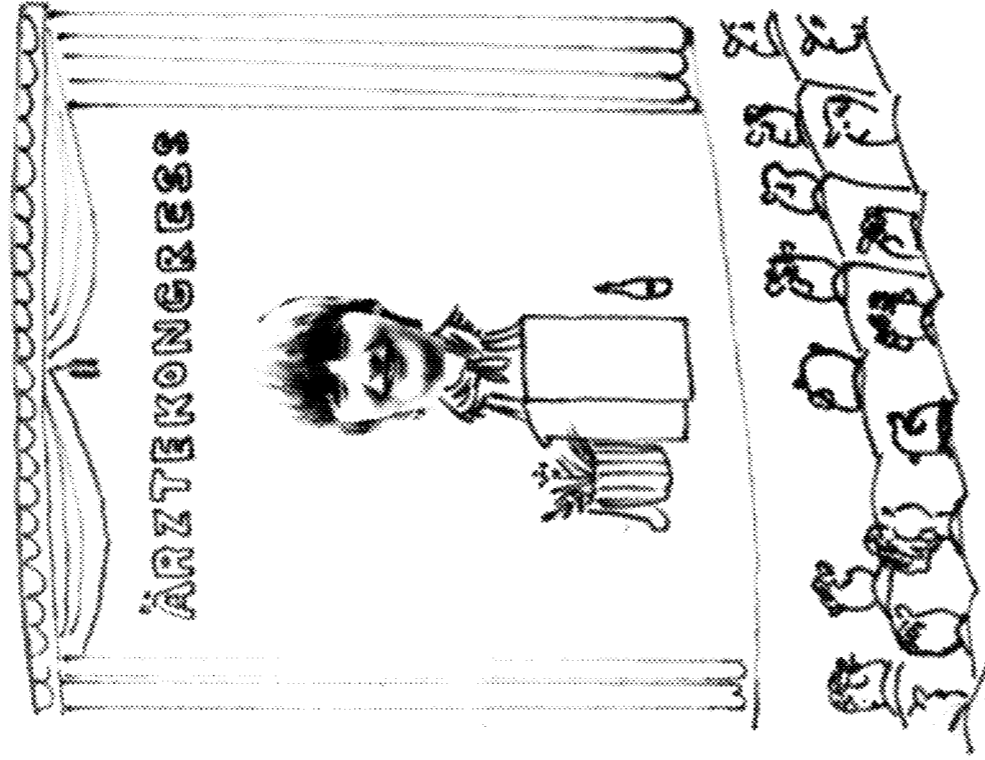 ÄRZTEKONGRESS